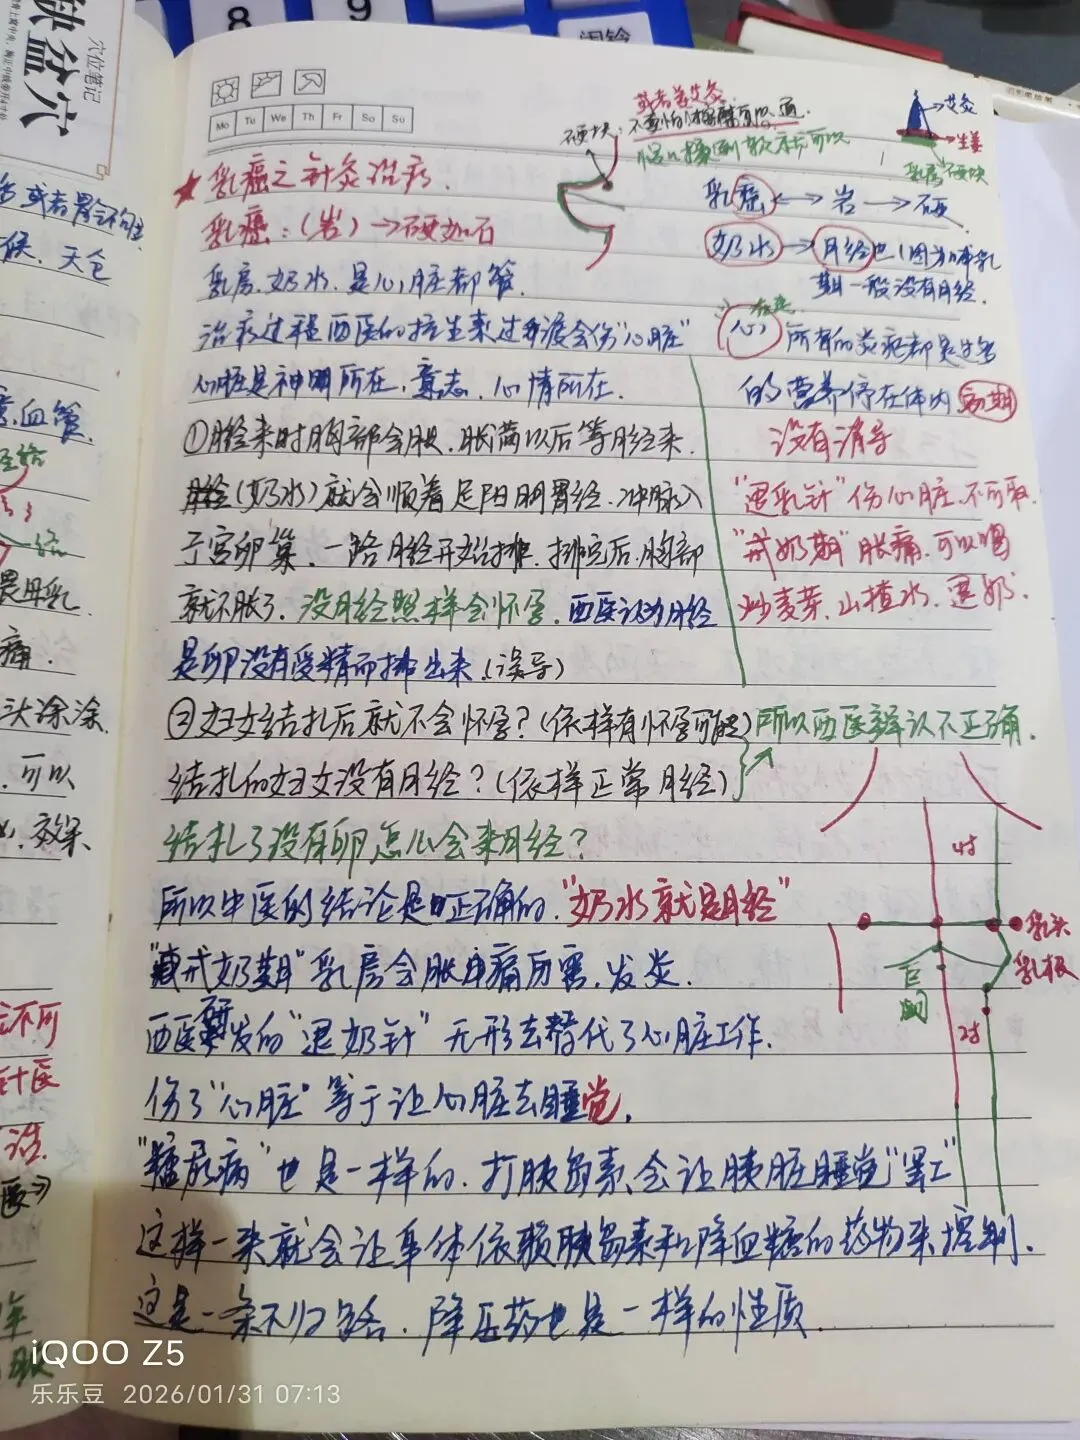 穴位笔记
缺盆穴
8
9
闹铃
Mo Tu We Th Fr Sa Su
★乳癌之针灸治疗.
乳癌:(岩)→硬如石
乳房.奶水.是心脏都管.
治疗过程西医的抗生素过渡会伤"心脏"
心脏是神明所在.意志.心情所在.
①月经来时胸部会胀.胀满以后等月经来.
月经(奶水)就会顺着足阳明胃经.冲脉入
子宫卵巢.一路月经开始排.排完后.胸部
就不胀了.没月经照样会怀孕.西医认为月经
是卵没有受精而排出来.(误导)
②妇女结扎后就不会怀孕?(依样有怀孕可能)所以西医辩认不正确.
结扎的妇女没有月经?(依样正常月经)
结扎了没有卵怎么会来月经?
所以中医的结论是正确的."奶水就是月经"
"戒奶期"乳房会胀痛厉害.发炎.
西医研发的"退奶针"无形去替代了心脏工作.
伤了"心脏"等于让心脏去睡觉.
"糖尿病"也是一样的.打胰岛素会让胰脏睡觉"罢工"
这样一来就会让身体依赖胰岛素和降血糖的药物来控制.
这是一条不归路.降压药也是一样的性质.
硬块:
或者姜艾灸.
→艾灸
→生姜
乳房硬块
乳癌←→岩→硬
奶水→月经也(因为哺乳
期一般没有月经.
心 所有的炎症都是多余
的营养停在体内
没有消导
"退乳针"伤心脏.不可取.
"戒奶期"胀痛.可以喝
炒麦芽.山楂水.退奶.
4寸
乳头
乳根
巨阙
2寸
或者胃会不
候、天仓
血管.
经
畏母乳.
痛.
头涂涂.
可以
效果.
不可
针医
治.
医→
年
iQOO Z5
乐乐豆 2026/01/31 07:13